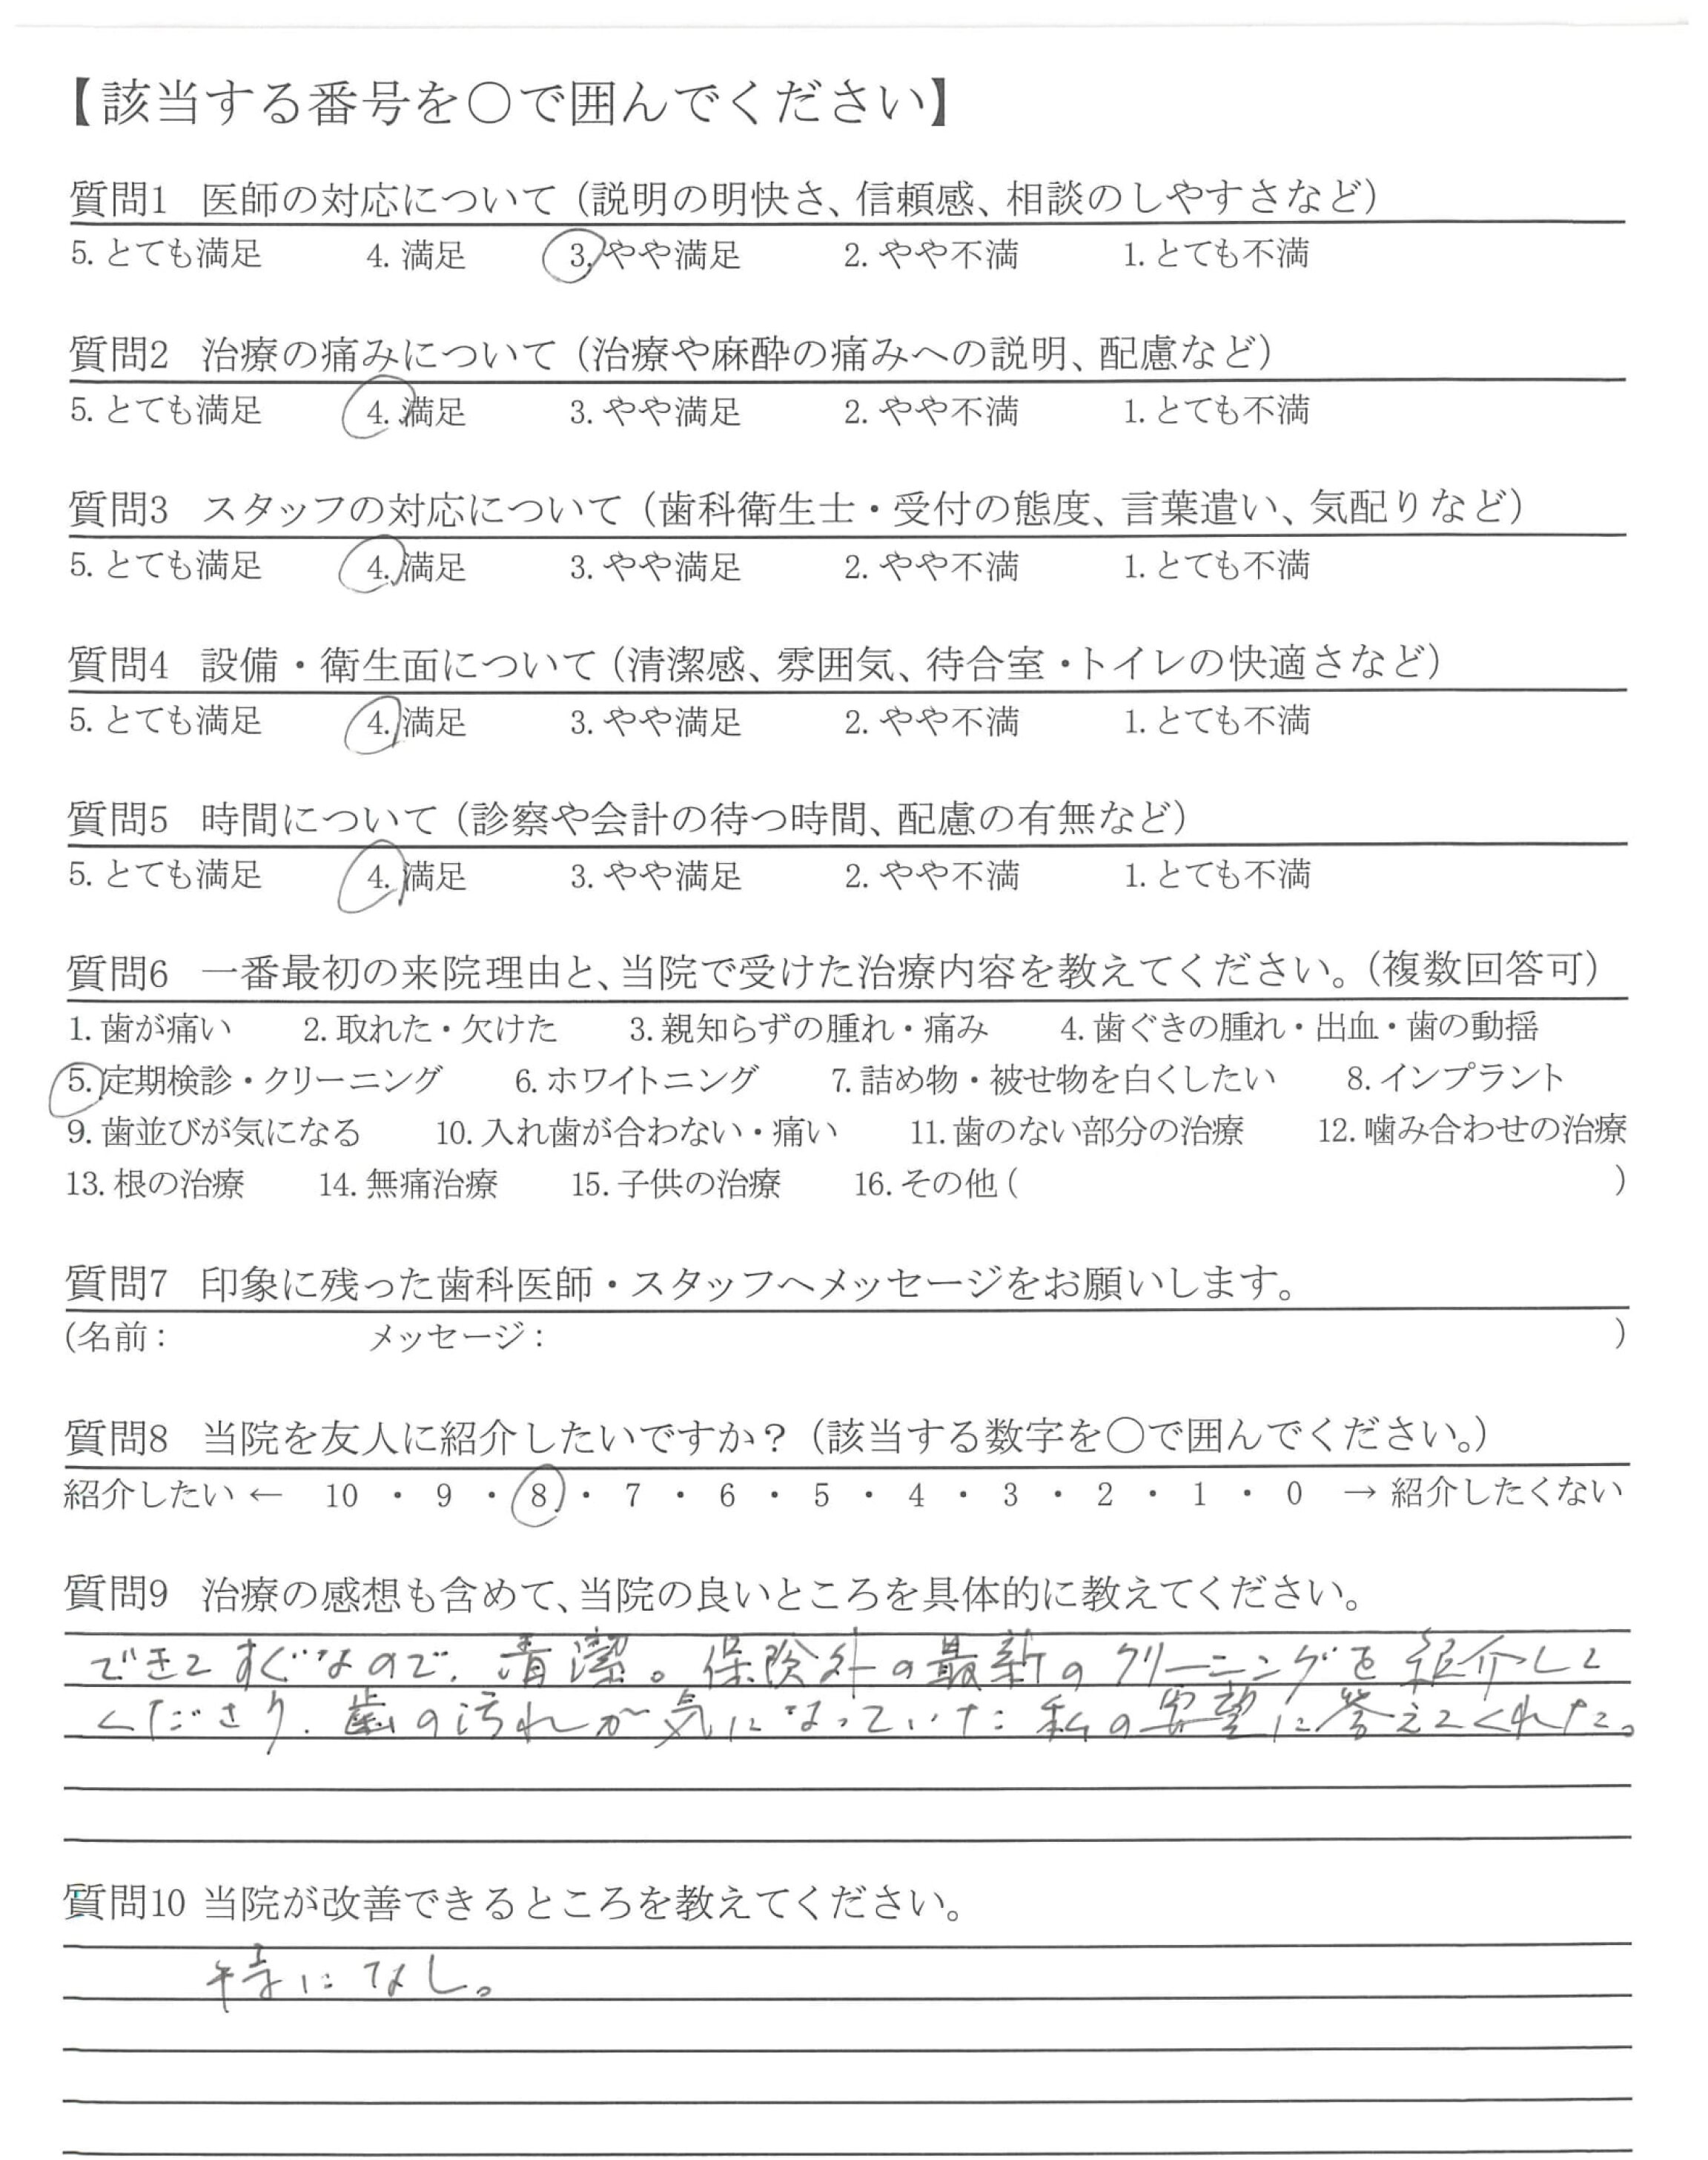 【該当する番号を○で囲んでください】
質問1 医師の対応について（説明の明快さ、信頼感、相談のしやすさなど）
5. とても満足 4. 満足 3. やや満足 2. やや不満 1. とても不満
質問2 治療の痛みについて（治療や麻酔の痛みへの説明、配慮など）
5. とても満足 4. 満足 3. やや満足 2. やや不満 1. とても不満
質問3 スタッフの対応について（歯科衛生士・受付の態度、言葉遣い、気配りなど）
5. とても満足 4. 満足 3. やや満足 2. やや不満 1. とても不満
質問4 設備・衛生面について（清潔感、雰囲気、待合室・トイレの快適さなど）
5. とても満足 4. 満足 3. やや満足 2. やや不満 1. とても不満
質問5 時間について（診察や会計の待つ時間、配慮の有無など）
5. とても満足 4. 満足 3. やや満足 2. やや不満 1. とても不満
質問6 一番最初の来院理由と、当院で受けた治療内容を教えてください。（複数回答可）
1. 歯が痛い 2. 取れた・欠けた 3. 親知らずの腫れ・痛み 4. 歯ぐきの腫れ・出血・歯の動揺
5. 定期検診・クリーニング 6. ホワイトニング 7. 詰め物・被せ物を白くしたい 8. インプラント
9. 歯並びが気になる 10. 入れ歯が合わない・痛い 11. 歯のない部分の治療 12. 噛み合わせの治療
13. 根の治療 14. 無痛治療 15. 子供の治療 16. その他 ( )
質問7 印象に残った歯科医師・スタッフへメッセージをお願いします。
(名前： メッセージ： )
質問8 当院を友人に紹介したいですか？（該当する数字を○で囲んでください。）
紹介したい ← 10 ・ 9 ・ 8 ・ 7 ・ 6 ・ 5 ・ 4 ・ 3 ・ 2 ・ 1 ・ 0 → 紹介したくない
質問9 治療の感想も含めて、当院の良いところを具体的に教えてください。
できてすぐなので、清潔。保険外の最新のクリーニングを紹介して
くださり、歯の汚れが気になっていた私の要望に答えてくれた。
質問10 当院が改善できるところを教えてください。
特になし。